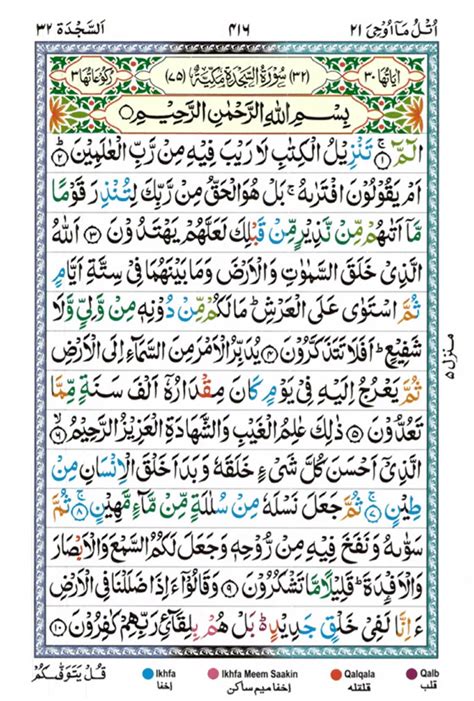 اُتْلُ مَاۤ اُوْحِیَ ٢١ ٤١٦ اَلسَّجْدَة ٣٢
اٰيَاتُهَا ٣٠ (٣٢) سُوْرَةُ السَّجْدَةِ مَكِّيَّةٌ (٧٥) رُكُوْعَاتُهَا ٣
بِسْمِ اللّٰهِ الرَّحْمٰنِ الرَّحِيْمِ
الٓمّٓ ۚ﴿١﴾ تَنْزِيْلُ الْكِتٰبِ لَا رَيْبَ فِيْهِ مِنْ رَّبِّ الْعٰلَمِيْنَ ؕ﴿٢﴾
اَمْ يَقُوْلُوْنَ افْتَرٰىهُ ۚ بَلْ هُوَ الْحَقُّ مِنْ رَّبِّكَ لِتُنْذِرَ قَوْمًا
مَّاۤ اَتٰىهُمْ مِّنْ نَّذِيْرٍ مِّنْ قَبْلِكَ لَعَلَّهُمْ يَهْتَدُوْنَ ﴿٣﴾ اَللّٰهُ
الَّذِيْ خَلَقَ السَّمٰوٰتِ وَالْاَرْضَ وَمَا بَيْنَهُمَا فِيْ سِتَّةِ اَيَّامٍ
ثُمَّ اسْتَوٰى عَلَى الْعَرْشِ ؕ مَا لَكُمْ مِّنْ دُوْنِهٖ مِنْ وَّلِيٍّ وَّلَا
شَفِيْعٍ ؕ اَفَلَا تَتَذَكَّرُوْنَ ﴿٤﴾ يُدَبِّرُ الْاَمْرَ مِنَ السَّمَآءِ اِلَى الْاَرْضِ
ثُمَّ يَعْرُجُ اِلَيْهِ فِيْ يَوْمٍ كَانَ مِقْدَارُهٗۤ اَلْفَ سَنَةٍ مِّمَّا
تَعُدُّوْنَ ﴿٥﴾ ذٰلِكَ عٰلِمُ الْغَيْبِ وَالشَّهَادَةِ الْعَزِيْزُ الرَّحِيْمُ ۙ﴿٦﴾
الَّذِيْۤ اَحْسَنَ كُلَّ شَيْءٍ خَلَقَهٗ وَبَدَاَ خَلْقَ الْاِنْسَانِ مِنْ
طِيْنٍ ۚ﴿٧﴾ ثُمَّ جَعَلَ نَسْلَهٗ مِنْ سُلٰلَةٍ مِّنْ مَّآءٍ مَّهِيْنٍ ۚ﴿٨﴾ ثُمَّ
سَوّٰىهُ وَنَفَخَ فِيْهِ مِنْ رُّوْحِهٖ وَجَعَلَ لَكُمُ السَّمْعَ وَالْاَبْصَارَ
وَالْاَفْـِٕدَةَ ؕ قَلِيْلًا مَّا تَشْكُرُوْنَ ﴿٩﴾ وَقَالُوْۤا ءَاِذَا ضَلَلْنَا فِي الْاَرْضِ
ءَاِنَّا لَفِيْ خَلْقٍ جَدِيْدٍ ؕ بَلْ هُمْ بِلِقَآئِ رَبِّهِمْ كٰفِرُوْنَ ﴿١٠﴾
منزل ٥
قُلْ يَتَوَفّٰىكُمْ
Ikhfa Ikhfa Meem Saakin Qalqala Qalb
اخفا اخفا میم ساکن قلقله قلب